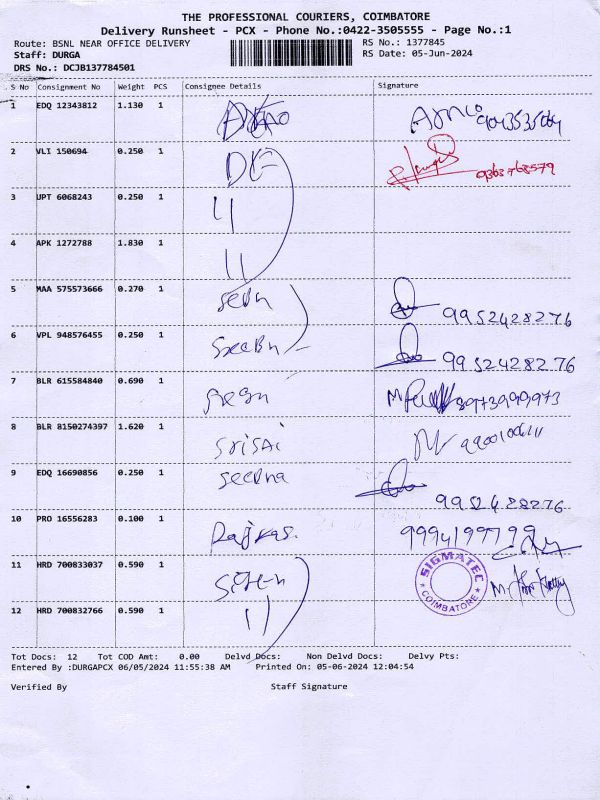 THE PROFESSIONAL COURIERS, COIMBATORE
Delivery Runsheet - PCX - Phone No.:0422-3505555 - Page No.:1
Route: BSNL NEAR OFFICE DELIVERY RS No.: 1377845
Staff: DURGA RS Date: 05-Jun-2024
DRS No.: DCJB137784501
S No Consignment No Weight PCS Consignee Details Signature
1 EDQ 12343812 1.130 1
2 VLI 150694 0.250 1
3 UPT 6068243 0.250 1 11
4 APK 1272788 1.830 1 11
5 MAA 575573666 0.270 1 9952428276
6 VPL 948576455 0.250 1 9952428276
7 BLR 615584840 0.690 1
8 BLR 8150274397 1.620 1 SriSAi
9 EDQ 16690856 0.250 1 9952428276
10 PRO 16556283 0.100 1 9994197799
11 HRD 700833037 0.590 1 SIGMATEC
12 HRD 700832766 0.590 1 11 COIMBATORE
Tot Docs: 12 Tot COD Amt: 0.00 Delvd Docs: Non Delvd Docs: Delvy Pts:
Entered By :DURGAPCX 06/05/2024 11:55:38 AM Printed On: 05-06-2024 12:04:54
Verified By Staff Signature